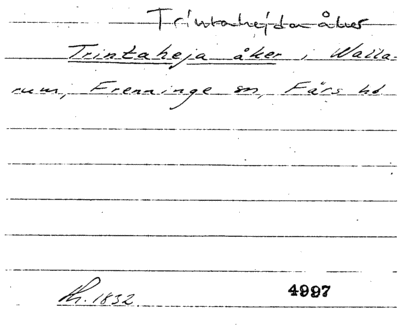 Trintahejda åker
Trintaheja åker i Walla-
rum, Frenninge sn, Färs hd
Lh. 1832 4997